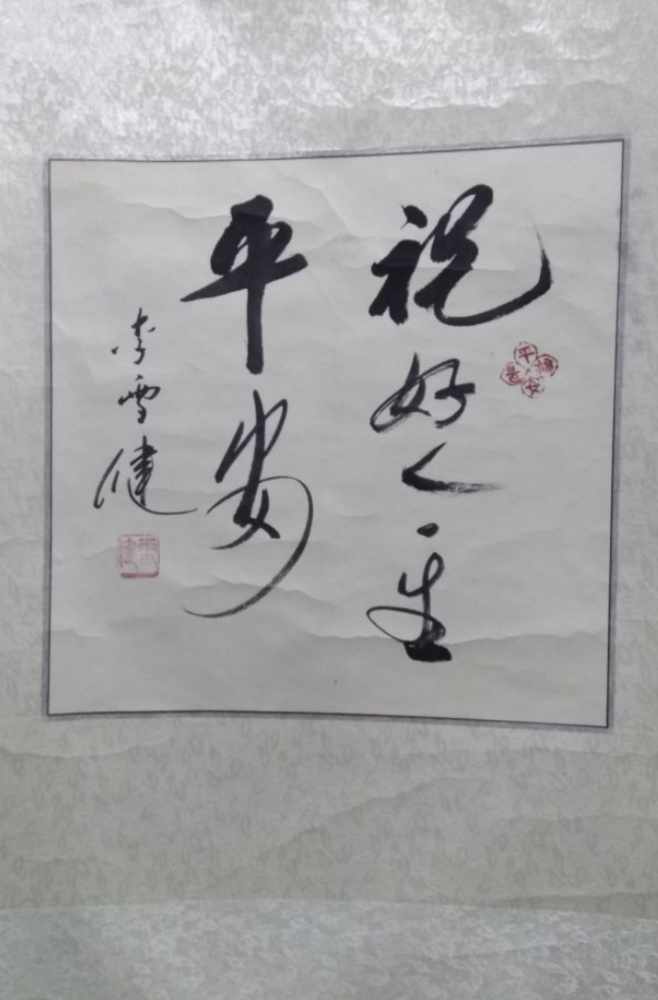 祝好人一生
平安
李雪健
平安是福